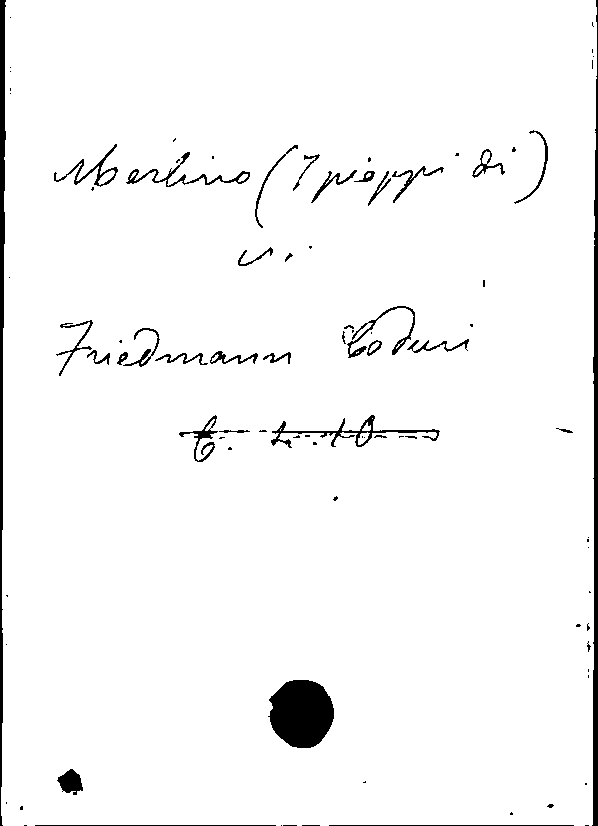 Merlino (I pioppi di)
v.
Friedmann Coduri
C. L. 10